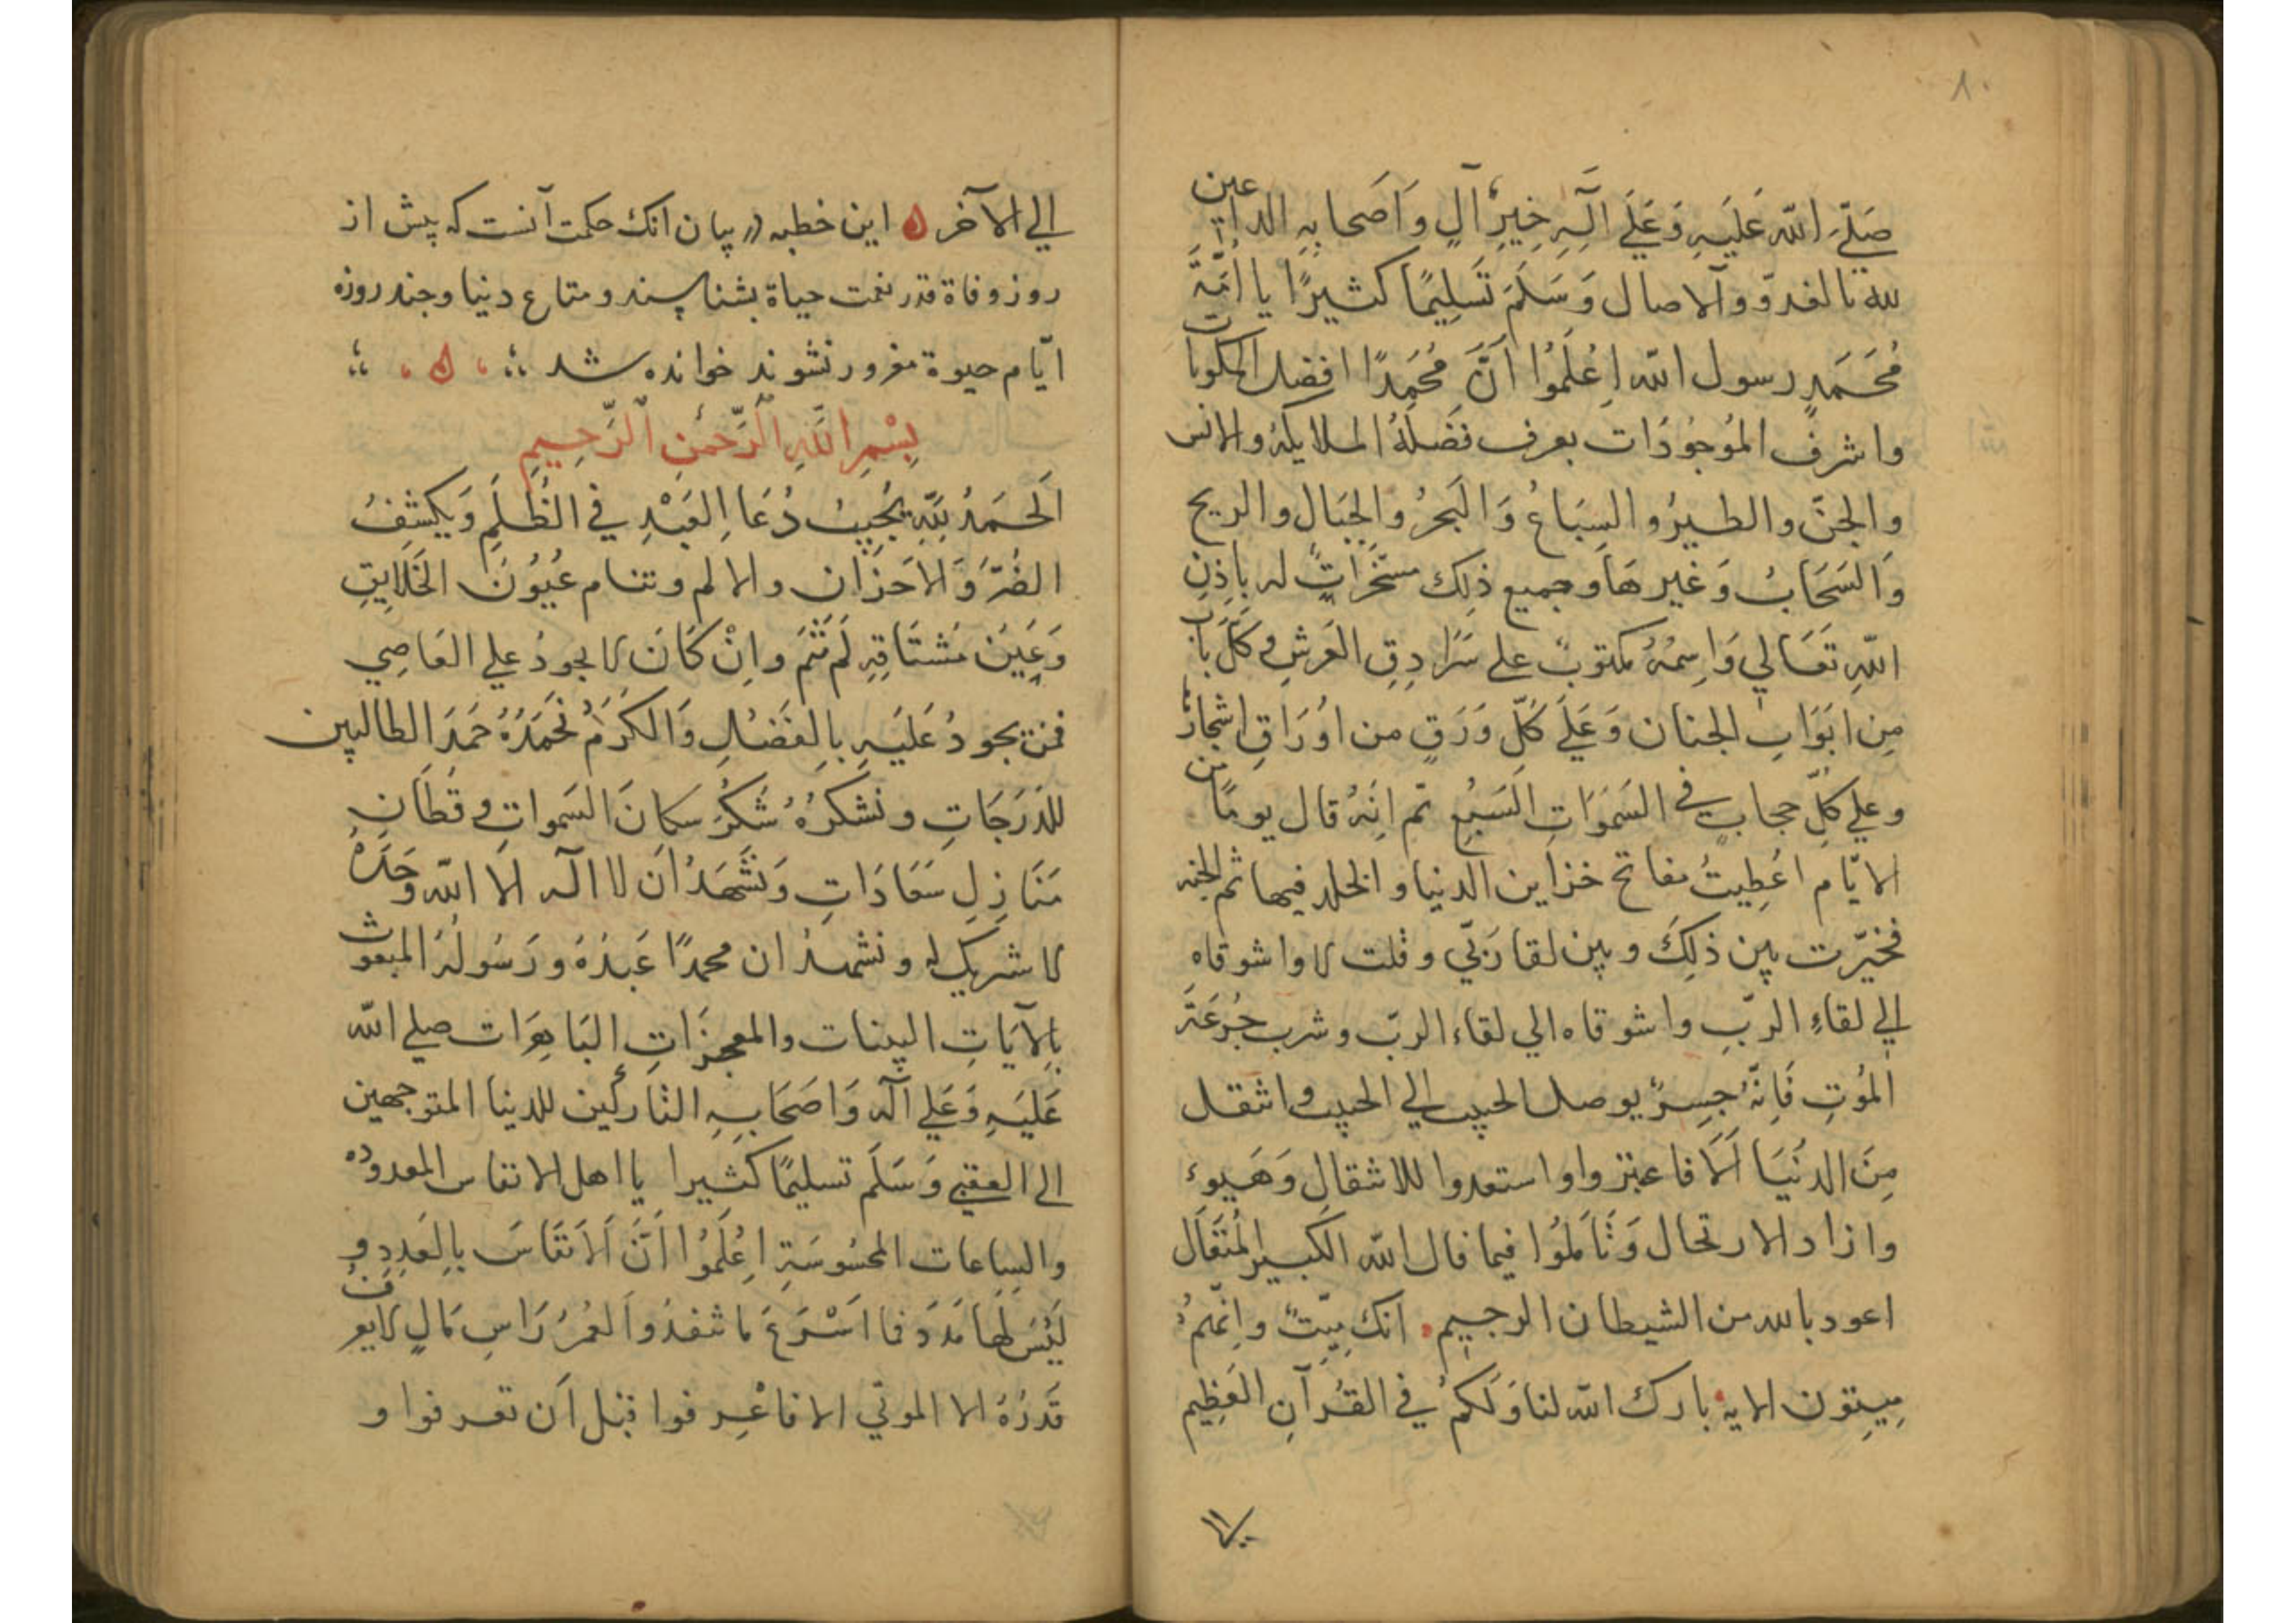 ٨٠
صَلَّى الله عَلَيهِ وَعَلَى آلِهِ خِيرِ آلٍ وَاَصحابِهِ الداعين
لله بالغدوّ والآصال وَسَلَمَ تَسلِيمًا كثيرًا يا اُمَّةَ
مُحَمَدٍ رسول الله اِعلَمُوا اَنَّ مُحَمدًا افضل المكونات
واشرفُ المَوجُودَات يعرف فَضلَهُ الملايكهُ والانس
والجنّ والطيرُ والسِبَاعُ وَالبَحرُ والجِبَال والريح
وَالسَحَابُ وَغيرهَا وجميع ذلِك مسَخَرَاتٌ له باِذنِ
اللهِ تَعَالي وَاِسمُهُ مكتوبٌ علي سَرَادِقِ العَرشِ وكَلّ بَابٍ
مِن ابَوَابِ الجنان وَعَلَي كَلّ وَرَقٍ من اوُرَاقِ اشجارٍ
وعلي كلِّ حجابٍ في السَمَوَاتِ السَبعِ ثم اِنَهُ قال يومًا من
الايّام اعُطِيتُ مفاتح خزاين الدنيا والخلد فيها ثم الجنه
فخيّرت بين ذلِكَ وبين لقا رَبّي وقلت لا واشوقاه
اِلي لقاءِ الربِّ واشوقاه الي لقاء الربّ وشرب جُرعَةَ
المَوتِ فَاِنَّهُ جِسرٌ يوصل الحبيب الي الحبيب وانتقل
مِنَ الدنُيَا اَلَا فاعتبروا واستعدوا للانتقالِ وَهَيوءِ
وازاد الارتحال وَتَاَمَلُوا فيما قال الله الكَبير المُتَعَال
اعوذ بالله من الشيطان الرجيمِ انك ميّتٌ واِنّهمُ
مِيتِون الايه بارك الله لنا وَلَكمُ في القُرآنِ العَظِيم
اِلي الاَخر ه این خطبه در بیان انک حکمت آنست که پیش از
روز وفاة قدر نعمت حیاة بشناسند و متاع دنیا وجند روزه
ایّام حیوة مغرور نشوند خوانده شد
بِسْمِ اللَّهِ الَّرَحمٰنِ الَّرَحِيمِ
اَلحَمَدُ لِلّهِ يُجيِبُ دُعَا اِلعَبْدِ في الظُلَمِ وَيكشِفُ
الضُرَّ وَالاَحزَان والالم وتنام عُيوُنَ الخَلَايِقِ
وَعَينُ مُشتَاقِهِ لَم تَنَم واِنْ كَانَ لا يجودُ علي العَاصِي
فمن يجودُ عَلَيَهِ بِالفَضلِ وَالكَرَمُ نَحَمدُهُ حَمدَ الطالبين
للدَرَجَاتِ ونَشكرُهُ شُكرَ سكانَ السَمواتِ وقطان
مَنَازِلِ سَعَادَاتِ وَنَشَهَدُ ان لا اله الا الله وَحَدَهُ
لا شريك له ونشهدُ ان محمدًا عَبدُهُ ورَسُولُهُ المبعوث
بِالآيَاتِ البينات والمعجِزَاتِ البَاهِرَات صلي الله
عَلَيَهِ وَعَلي آله وَاصحَابِهِ التاركين للدنيا المتوجهين
الي العقبي وَسَلَم تسليمًا كثيرا يا اهل الانفاس المعدوده
والسِاعات المحسُوسَةِ اِعُلَمُوا اَنَّ اَلاَنفَاسَ بِالعَدِد و
لَيَسَ لَهَا مَدَدَ فما اَسْرَعَ ما تنفدُ والعُمرُ رَاسِ مَالٍ لا يعرف
قَدرُهُ الا الموتي الا فاعْرِفوا قبل اَن تعرفوا و